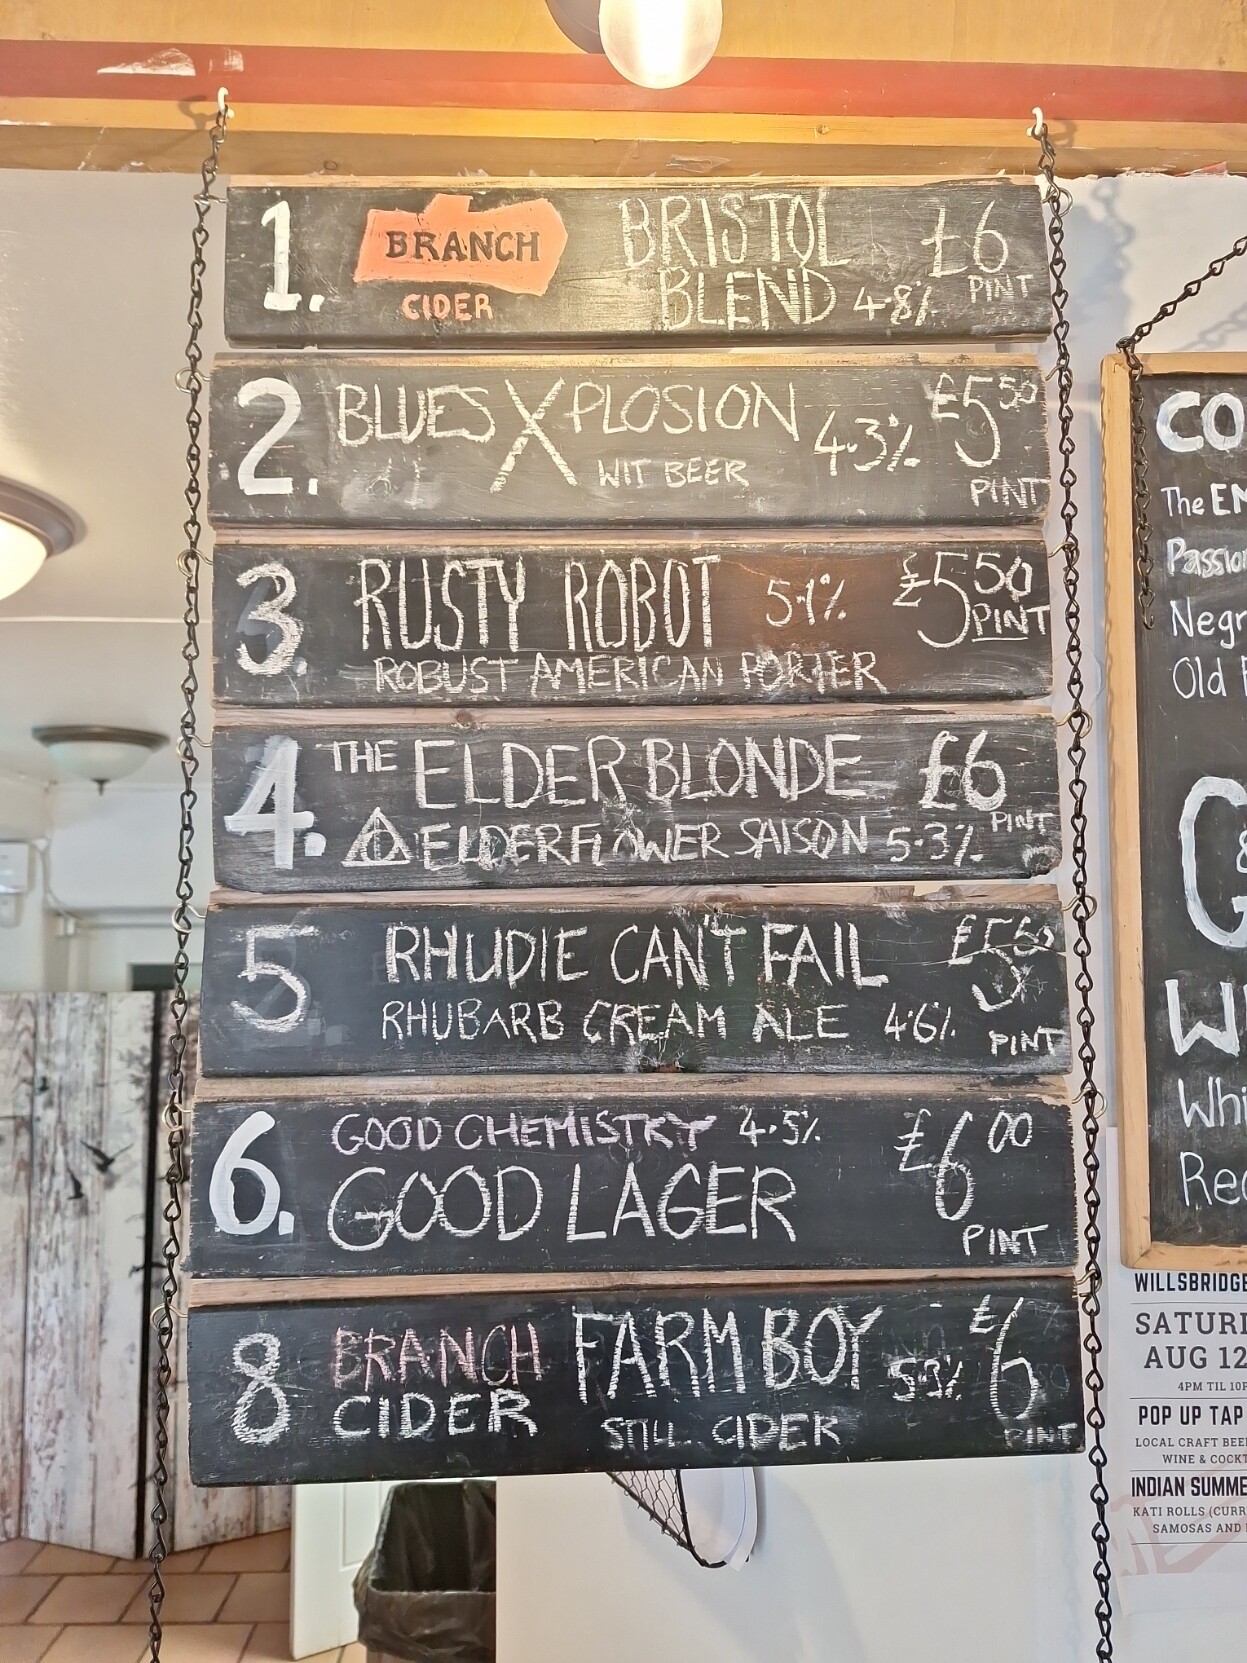 1. BRANCH CIDER BRISTOL BLEND 4.8% £6 PINT
2. BLUES XPLOSION 4.3% £5 50
WIT BEER PINT
3. RUSTY ROBOT 5.1% £5 50 PINT
ROBUST AMERICAN PORTER
4. THE ELDER BLONDE £6 PINT
ELDERFLOWER SAISON 5.3%
5 RHUDIE CAN'T FAIL
RHUBARB CREAM ALE 4.6% PINT
6. GOOD CHEMISTRY 4.5% £6 00
GOOD LAGER PINT
8 BRANCH CIDER FARM BOY 5.3% £6
STILL CIDER PINT
CO
The EM
Passion
Negr
Old
G
&
W
Whi
Re
WILLSBRIDGE
SATUR
AUG 12
4PM TIL 10P
POP UP TAP
LOCAL CRAFT BEE
WINE & COCKT
INDIAN SUMME
KATI ROLLS (CURR
SAMOSAS AND